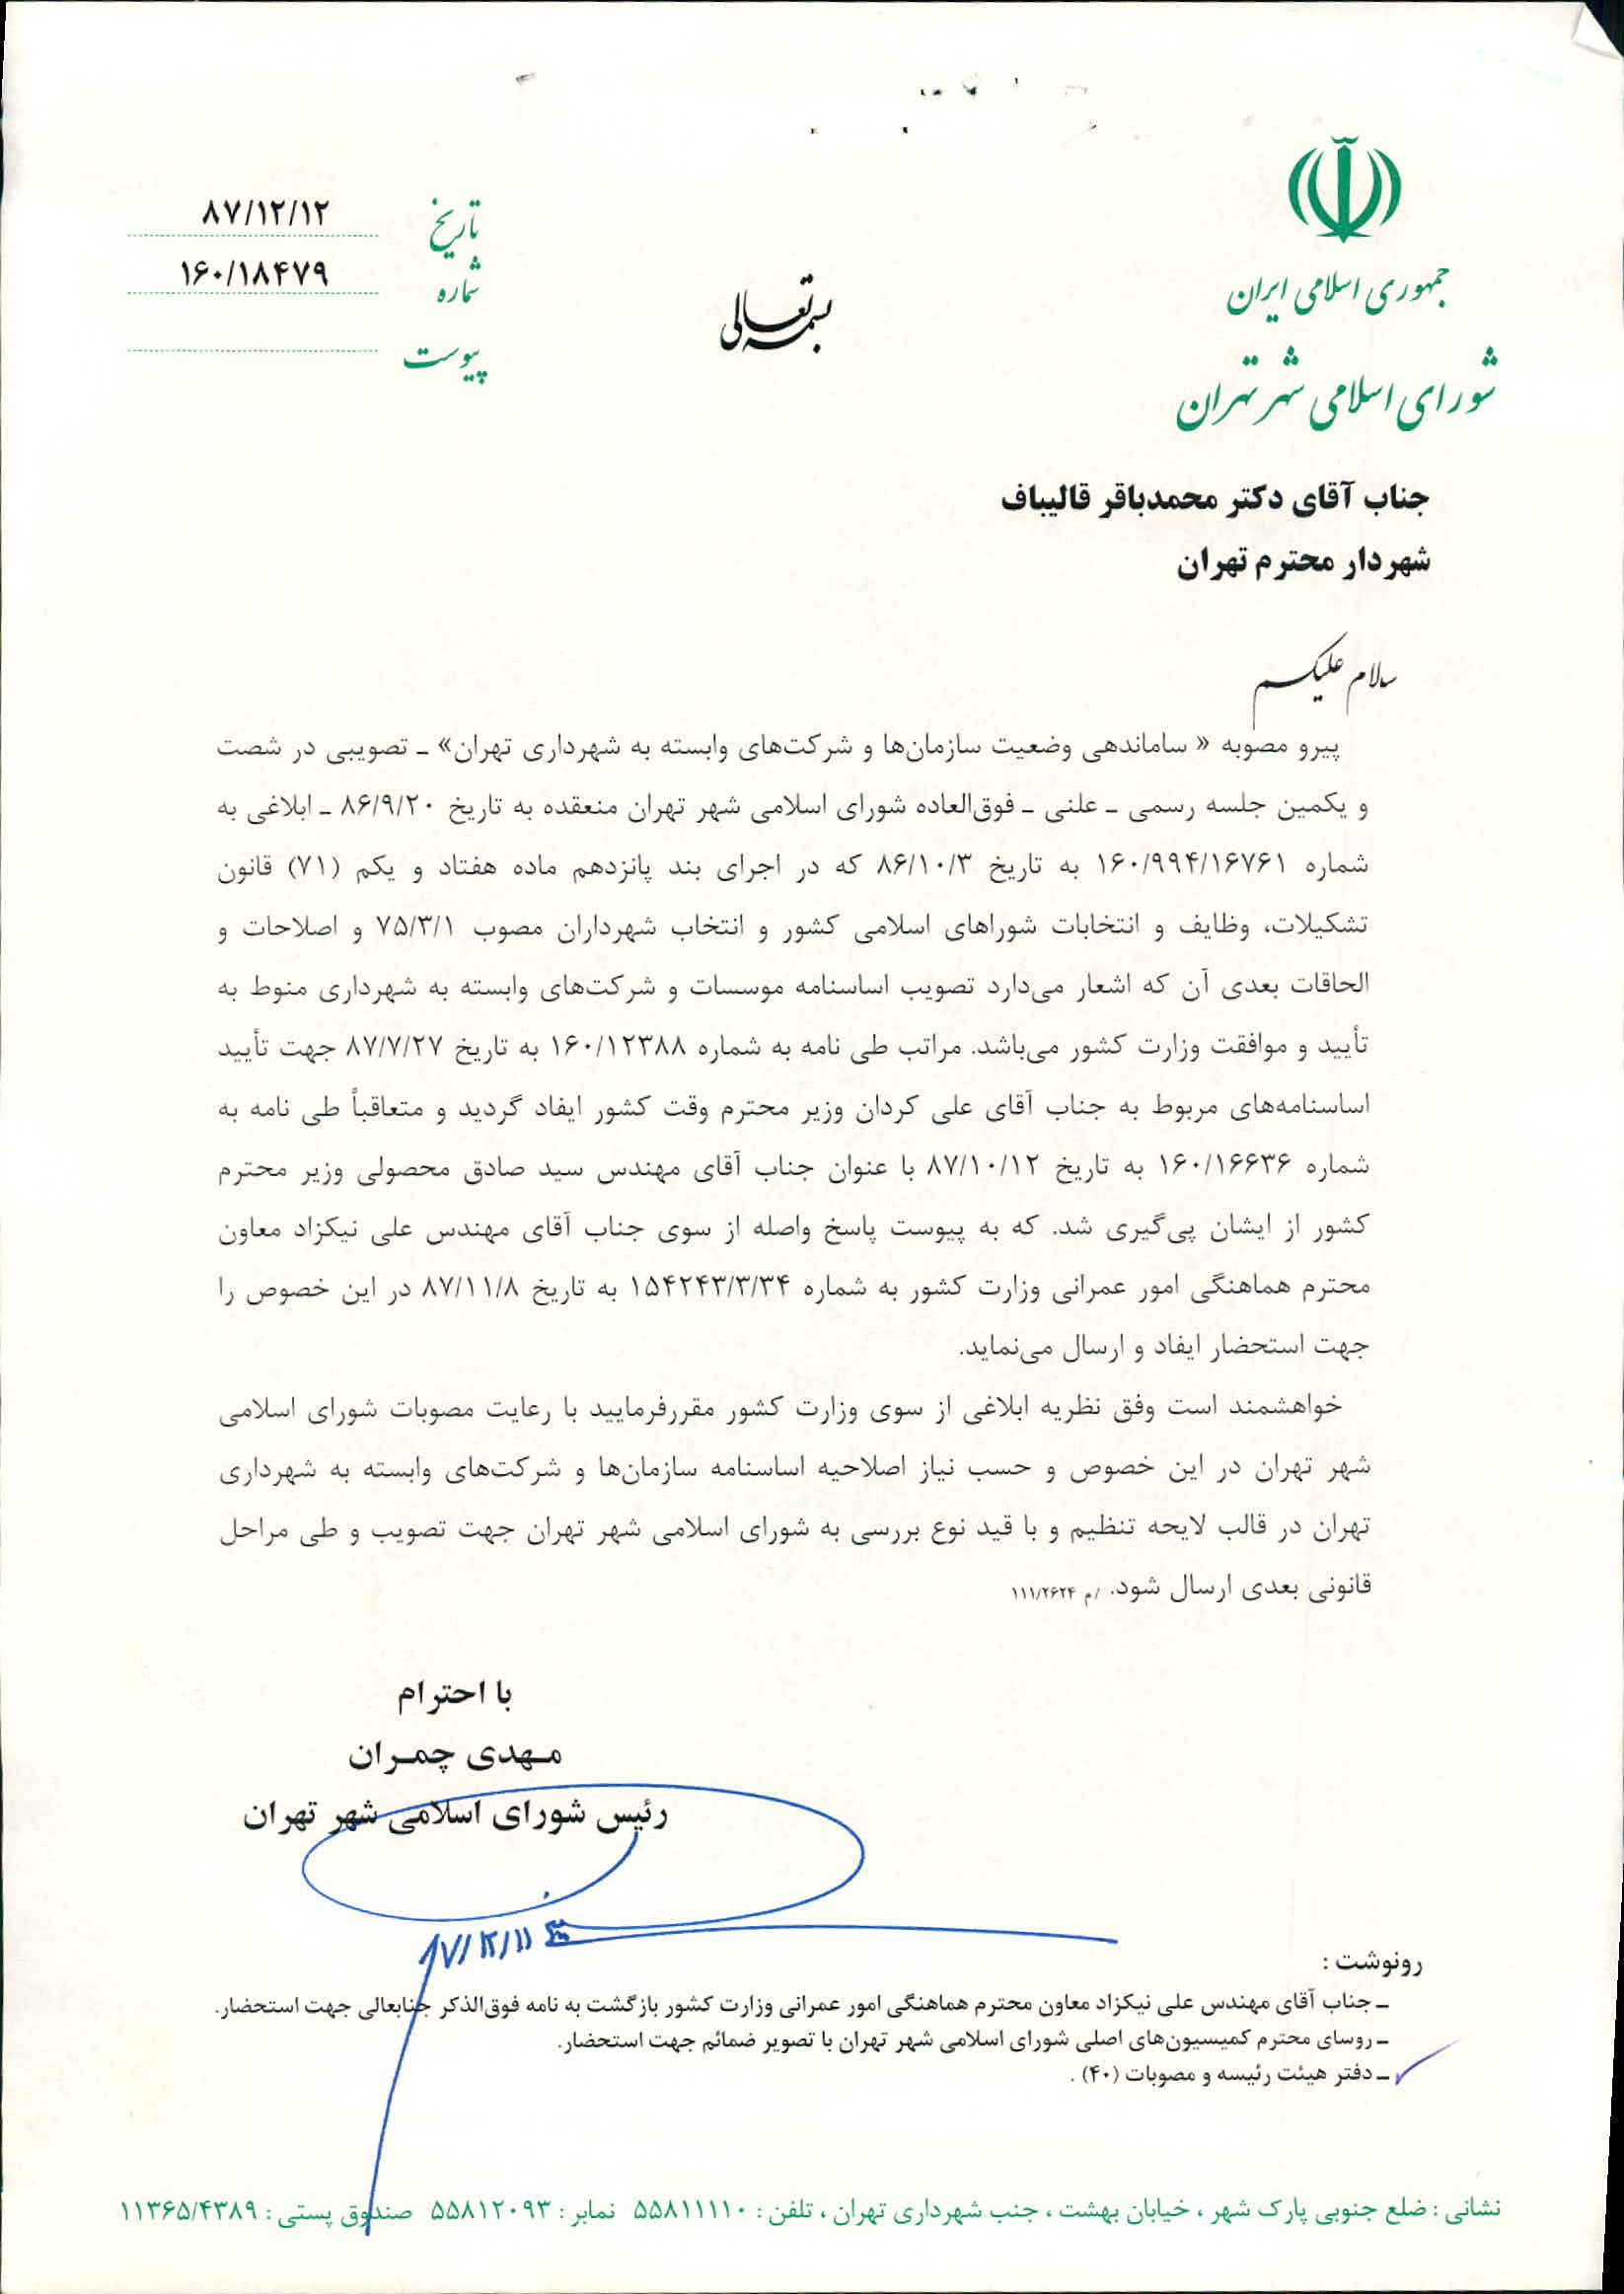 جمهوری اسلامی ایران
شورای اسلامی شهر تهران
بسمه تعالی
تاریخ ۸۷/۱۲/۱۲
شماره ۱۶۰/۱۸۴۷۹
پیوست
جناب آقای دکتر محمدباقر قالیباف
شهردار محترم تهران
سلام علیکم
پیرو مصوبه « ساماندهی وضعیت سازمان‌ها و شرکت‌های وابسته به شهرداری تهران» ـ تصویبی در شصت
و یکمین جلسه رسمی ـ علنی ـ فوق‌العاده شورای اسلامی شهر تهران منعقده به تاریخ ۸۶/۹/۲۰ ـ ابلاغی به
شماره ۱۶۰/۹۹۴/۱۶۷۶۱ به تاریخ ۸۶/۱۰/۳ که در اجرای بند پانزدهم ماده هفتاد و یکم (۷۱) قانون
تشکیلات، وظایف و انتخابات شوراهای اسلامی کشور و انتخاب شهرداران مصوب ۷۵/۳/۱ و اصلاحات و
الحاقات بعدی آن که اشعار می‌دارد تصویب اساسنامه موسسات و شرکت‌های وابسته به شهرداری منوط به
تأیید و موافقت وزارت کشور می‌باشد. مراتب طی نامه به شماره ۱۶۰/۱۲۳۸۸ به تاریخ ۸۷/۷/۲۷ جهت تأیید
اساسنامه‌های مربوط به جناب آقای علی کردان وزیر محترم وقت کشور ایفاد گردید و متعاقباً طی نامه به
شماره ۱۶۰/۱۶۶۳۶ به تاریخ ۸۷/۱۰/۱۲ با عنوان جناب آقای مهندس سید صادق محصولی وزیر محترم
کشور از ایشان پی‌گیری شد. که به پیوست پاسخ واصله از سوی جناب آقای مهندس علی نیکزاد معاون
محترم هماهنگی امور عمرانی وزارت کشور به شماره ۱۵۴۲۴۳/۳/۳۴ به تاریخ ۸۷/۱۱/۸ در این خصوص را
جهت استحضار ایفاد و ارسال می‌نماید.
خواهشمند است وفق نظریه ابلاغی از سوی وزارت کشور مقررفرمایید با رعایت مصوبات شورای اسلامی
شهر تهران در این خصوص و حسب نیاز اصلاحیه اساسنامه سازمان‌ها و شرکت‌های وابسته به شهرداری
تهران در قالب لایحه تنظیم و با قید نوع بررسی به شورای اسلامی شهر تهران جهت تصویب و طی مراحل
قانونی بعدی ارسال شود. /م ۱۱۱/۲۶۲۴
با احترام
مهدی چمران
رئیس شورای اسلامی شهر تهران
رونوشت :
ـ جناب آقای مهندس علی نیکزاد معاون محترم هماهنگی امور عمرانی وزارت کشور بازگشت به نامه فوق‌الذکر جنابعالی جهت استحضار.
ـ روسای محترم کمیسیون‌های اصلی شورای اسلامی شهر تهران با تصویر ضمائم جهت استحضار.
ـ دفتر هیئت رئیسه و مصوبات (۴۰) .
نشانی : ضلع جنوبی پارک شهر ، خیابان بهشت ، جنب شهرداری تهران ، تلفن : ۵۵۸۱۱۱۱۰ نمابر : ۵۵۸۱۲۰۹۳ صندوق پستی : ۱۱۳۶۵/۴۳۸۹